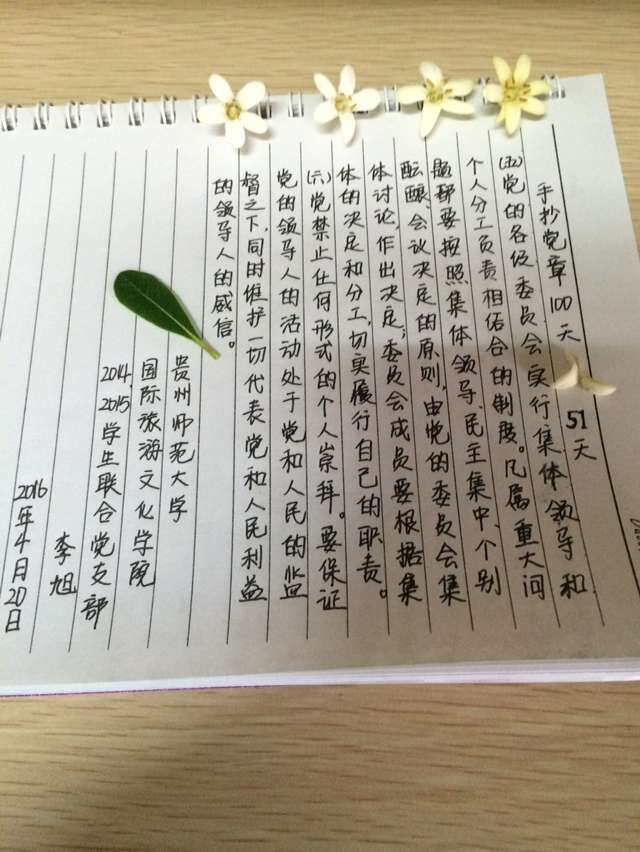 手抄党章100天 51天
(五)党的各级委员会实行集体领导和
个人分工负责相结合的制度。凡属重大问
题都要按照集体领导、民主集中、个别
酝酿、会议决定的原则，由党的委员会集
体讨论，作出决定；委员会成员要根据集
体的决定和分工，切实履行自己的职责。
(六)党禁止任何形式的个人崇拜。要保证
党的领导人的活动处于党和人民的监
督之下，同时维护一切代表党和人民利益
的领导人的威信。
贵州师范大学
国际旅游文化学院
2014、2015学生联合党支部
李旭
2016年4月20日